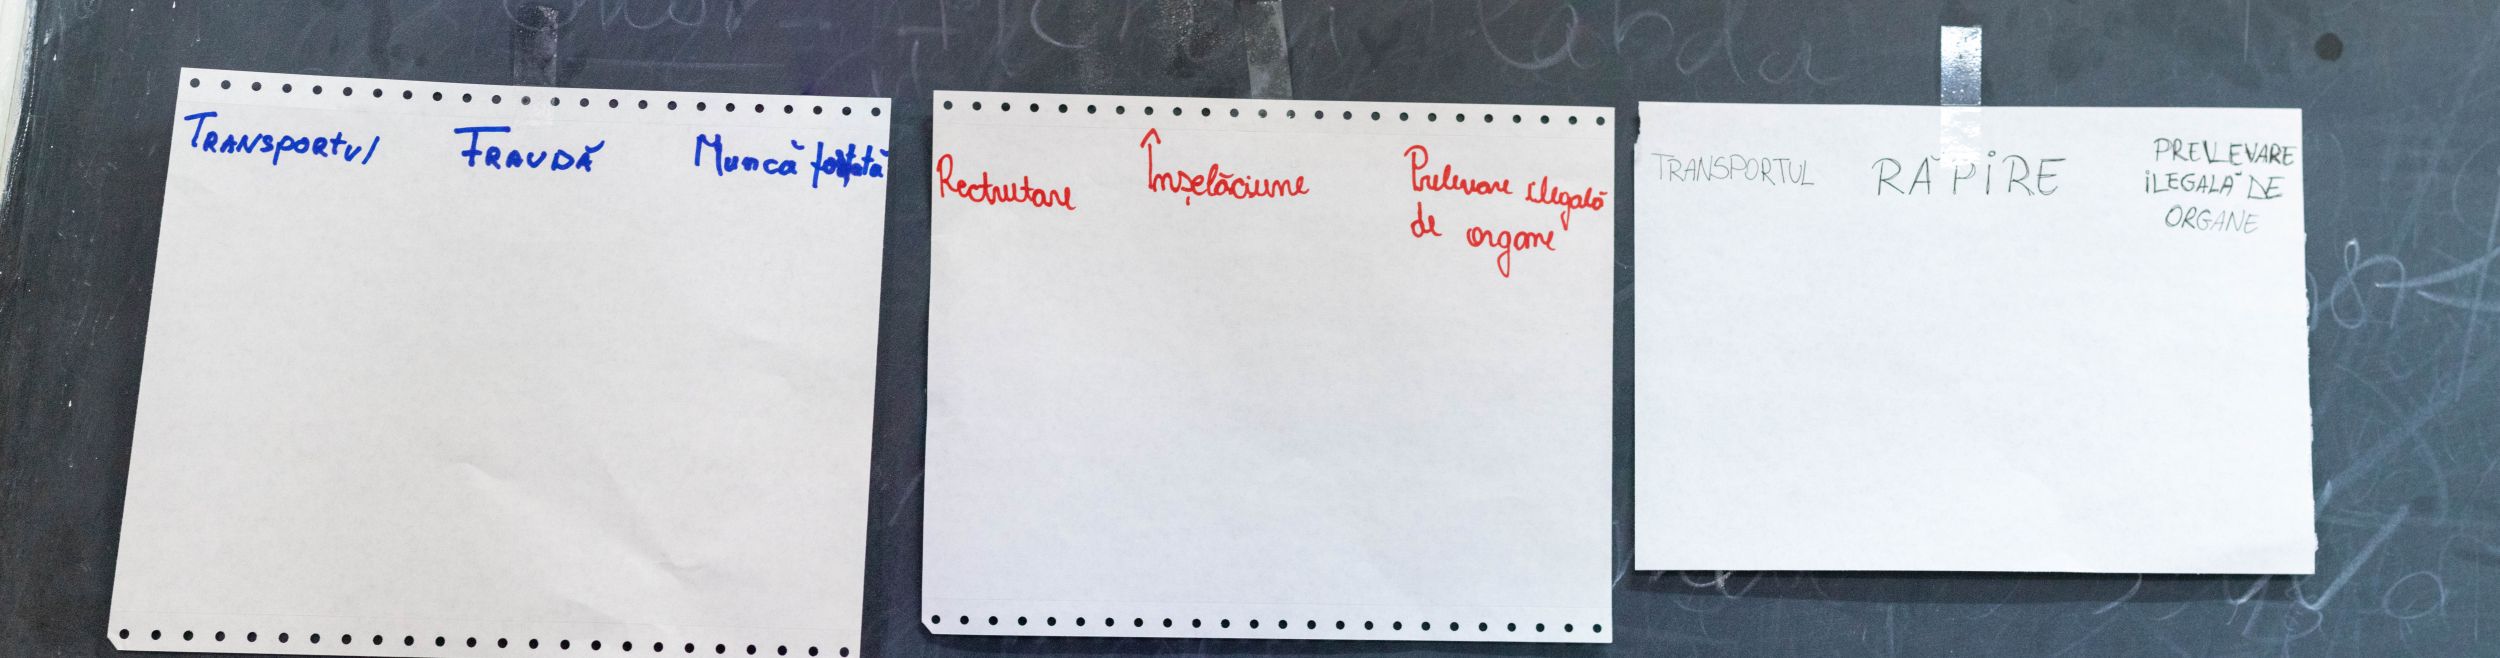 TRANSPORTUL FRAUDĂ Muncă forțată
Rectrutare Înșelăciune Prelevare ilegală
de organe
TRANSPORTUL RĂPIRE PRELEVARE
ILEGALĂ DE
ORGANE